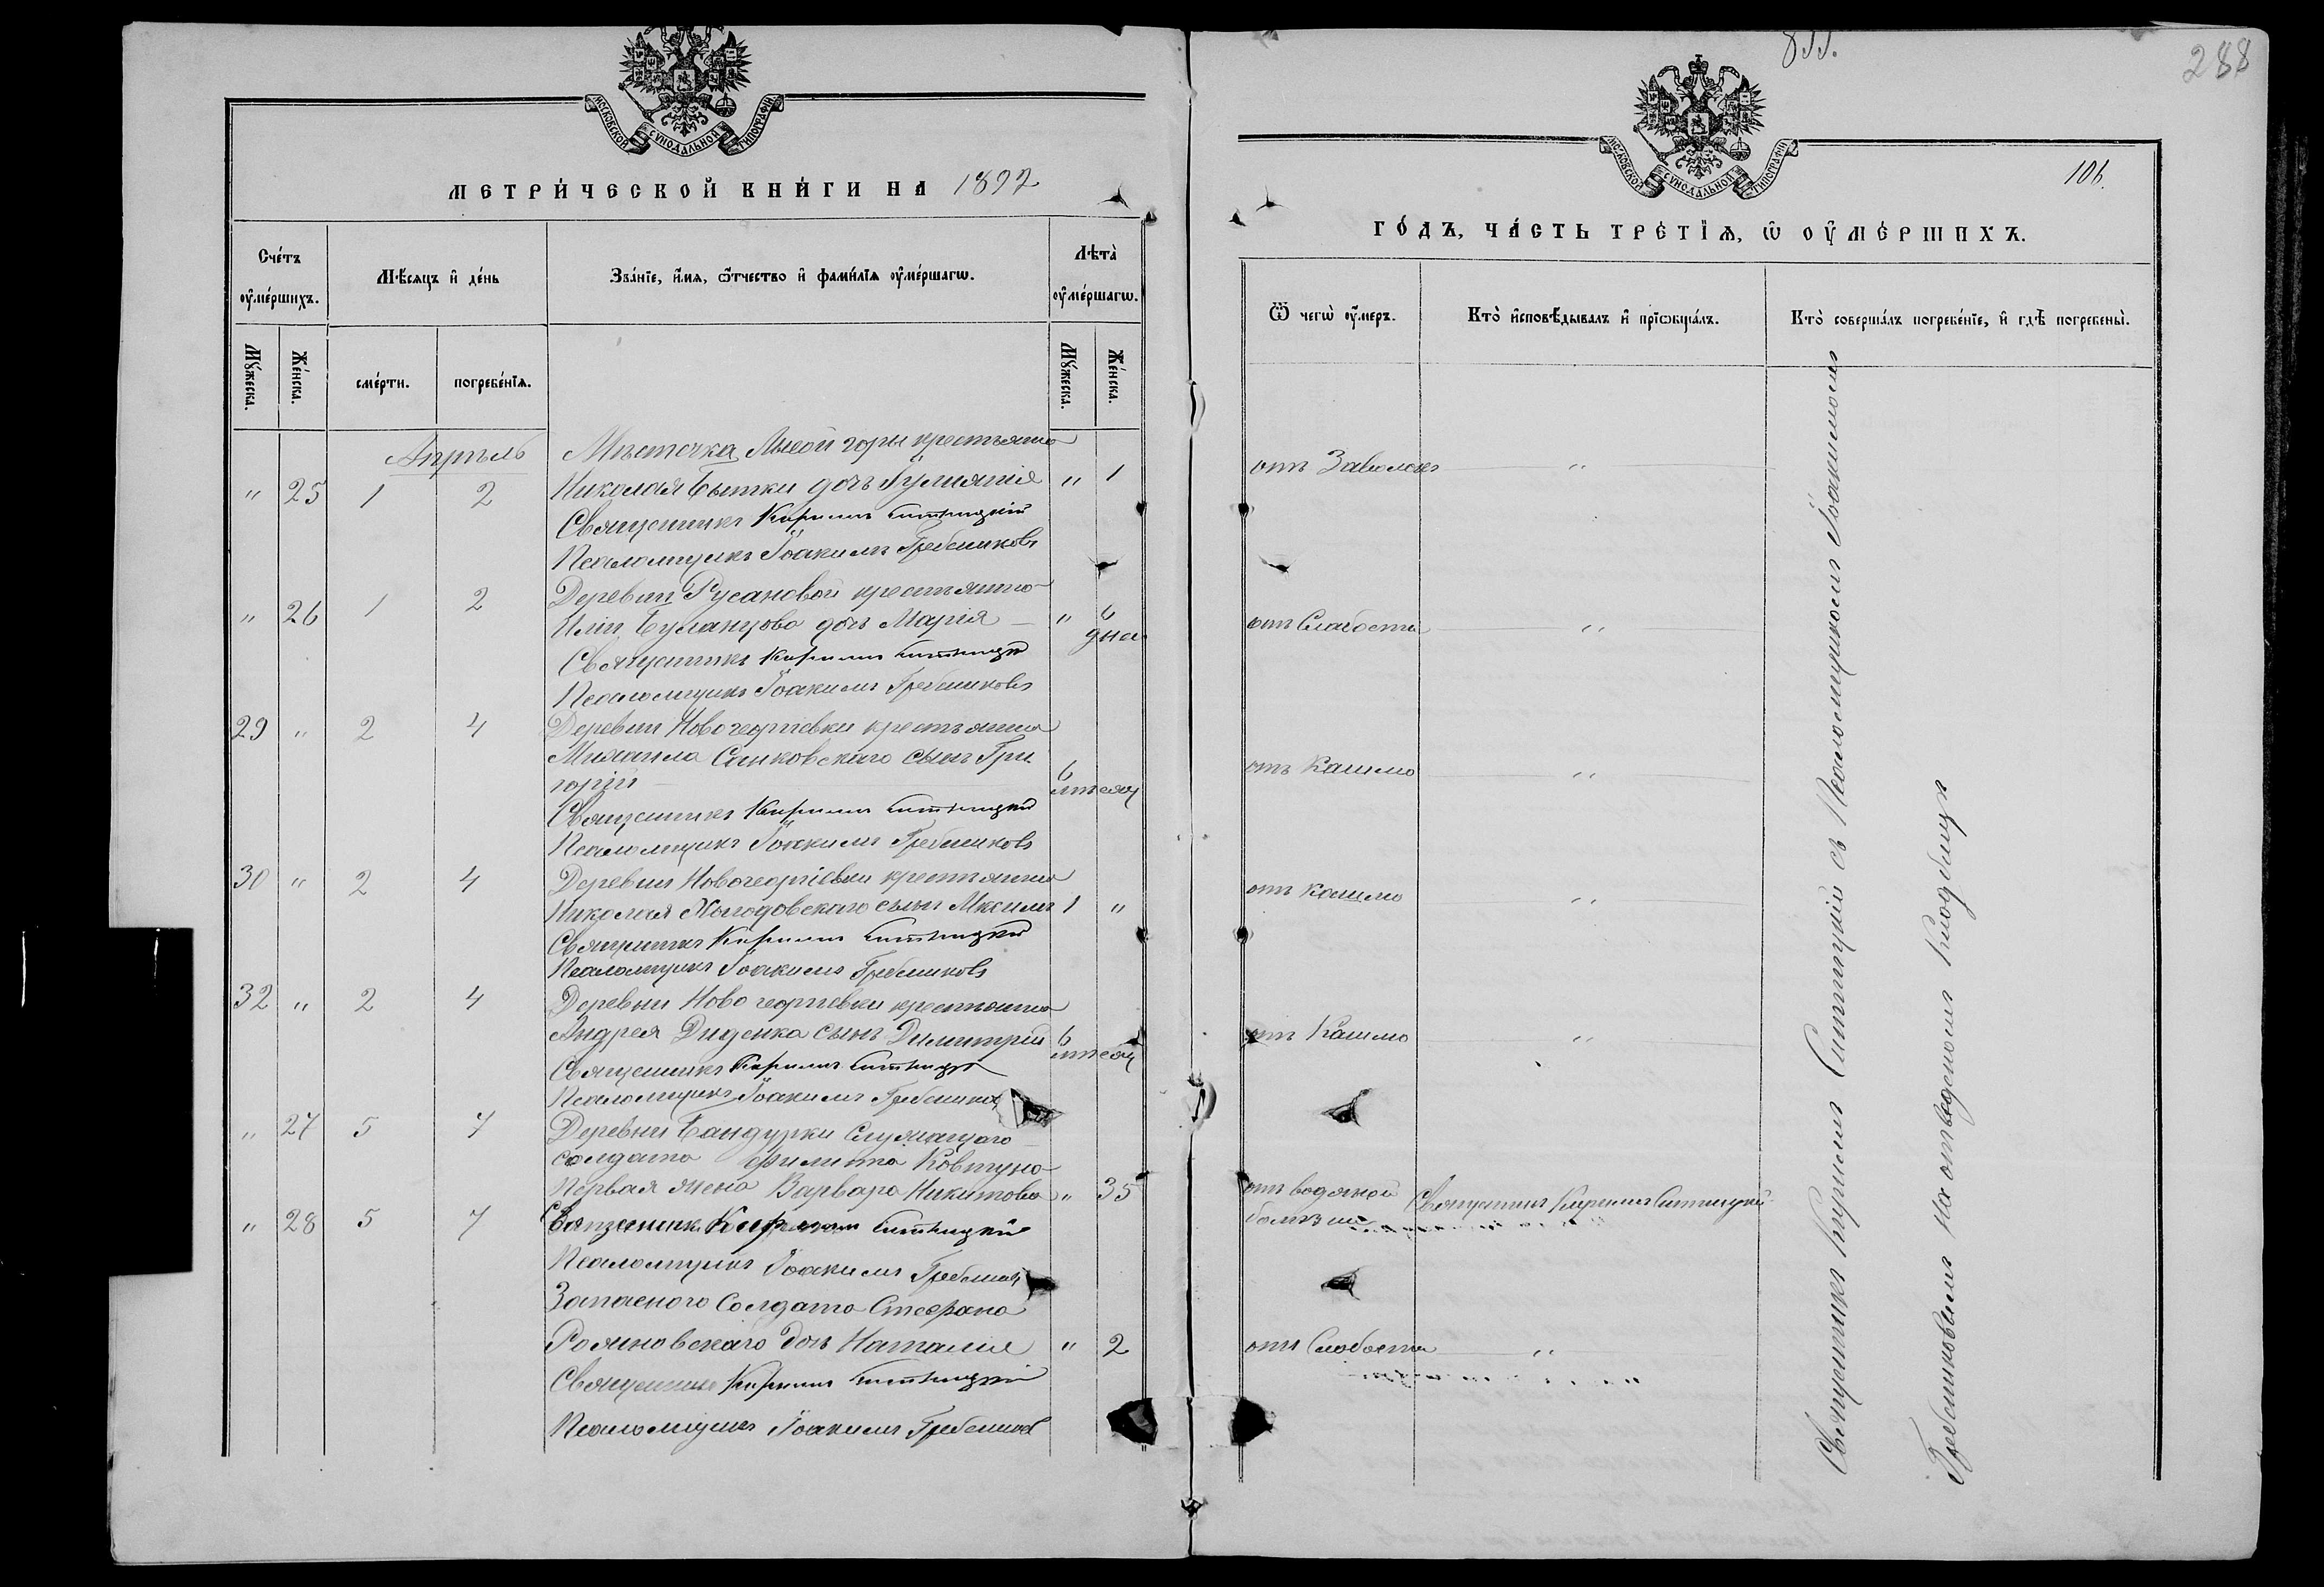 288
106.
МОСКОВСКОЙ СѴНОДАЛЬНОЙ ТИПОГРАФІИ
МЕТРИ́ЧЕСКОЙ КНИ́ГИ НА 1892
Сче́тъ оу҆ме́ршихъ.
Мѣ́сяцъ и҆ де́нь
Зва́нїе, и҆́мя, ѻ҆́тчество и҆ фами́лїя оу҆ме́ршагѡ.
Лѣта̀ оу҆ме́ршагѡ.
Мꙋ́жеска.
Же́нска.
сме́рти.
погребе́нїя.
Мꙋ́жеска.
Же́нска.
Апрѣль
Мѣстечка Лысой горы крестьянина
" 25 1 2 Николая дочь " 1
Священникъ Кириллъ Ситницкій
Псаломщикъ Іоакимъ Гребениковъ
Деревни Русановой крестьянина
" 26 1 2 Иліи Буланцова дочь Марія " 6
дня
Священникъ Кириллъ Ситницкій
Псаломщикъ Іоакимъ Гребениковъ
29 " 2 4 Деревни Новогеоргіевки крестьянина
Михаила Синковскаго сынъ Гри
горій 6
мѣсяц
Священникъ Кириллъ Ситницкій
Псаломщикъ Іоакимъ Гребениковъ
30 " 2 4 Деревни Новогеоргіевки крестьянина
Николая сынъ 1 "
Священникъ Кириллъ Ситницкій
Псаломщикъ Іоакимъ Гребениковъ
32 " 2 4 Деревни Новогеоргіевки крестьянина
Андрея Диденка сынъ Димитрій 6
мѣсяц
Священникъ Кириллъ Ситницкій
Псаломщикъ Іоакимъ Гребеников
" 27 5 7 Деревни Бандурки Служащаго
солдата Филипа Ковтуна
Первая жена Варвара Никитова " 35
" 28 5 7 Священникъ Кириллъ Ситницкій
Псаломщикъ Іоакимъ Гребеник
Запаснаго Солдата Стефана
дочь Наталія " 2
Священникъ Кириллъ Ситницкій
Псаломщикъ Іоакимъ Гребеников
МОСКОВСКОЙ СѴНОДАЛЬНОЙ ТИПОГРАФІИ
ГО́ДЪ, ЧА́СТЬ ТРЕ́ТЇЯ, Ѡ҆ ОУ҆МЕ́РШИХЪ.
Ѿ чегѡ̀ оу҆́меръ.
Кто̀ и҆сповѣ́дывалъ и҆ прїѡбща́лъ.
Кто̀ соверша́лъ погребе́нїе, и҆ гдѣ̀ погребены̀.
отъ "
отъ Слабости "
отъ Кашлю "
отъ кашлю "
отъ Кашлю "
отъ водяной Священникъ Кириллъ Ситницкій
болѣзни
отъ Слабости "
Священникъ Кириллъ Ситницкій съ Псаломщикомъ Іоакимомъ
Гребениковымъ на отведеномъ кладбищѣ